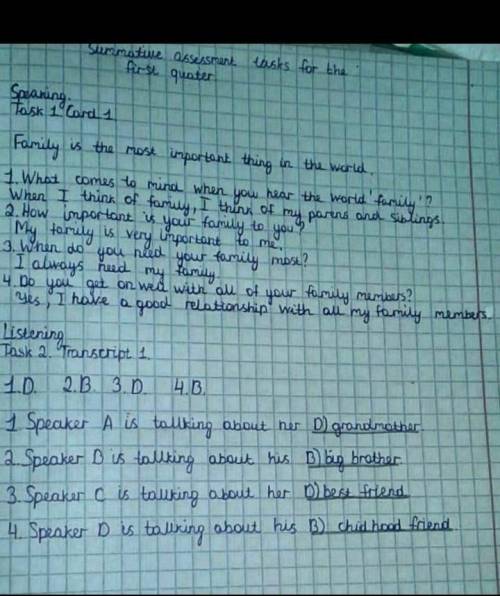 Summative assessment tasks for the
first quater
Speaking.
Task 1 Card 1
Family is the most important thing in the world.
1. What comes to mind when you hear the world 'family'?
When I think of family, I think of my parens and siblings.
2. How important is your family to you?
My family is very important to me.
3. When do you need your family most?
I always need my family.
4. Do you get on wed with all of your family members?
Yes, I have a good relationship with all my family members.
Listening
Task 2. Transcript 1.
1.D. 2.B. 3.D. 4.B.
1. Speaker A is talking about her D) grandmother.
2. Speaker B is talking about his B) big brother
3. Speaker C is talking about her D) best friend
4. Speaker D is talking about his B) chidhood friend